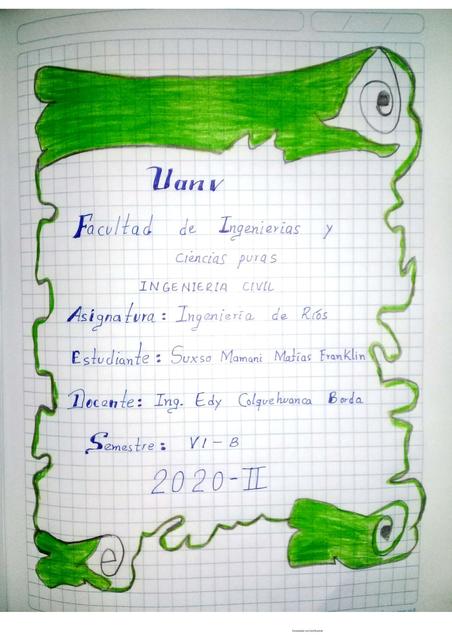 Uanv
Facultad de Ingenierias y
Ciencias puras
INGENIERIA CIVIL
Asignatura: Ingenieria de Ríos
Estudiante: Suxso Mamani Matias Franklin
Docente: Ing. Edy Colquehuanca Borda
Semestre: VI - B
2020-II